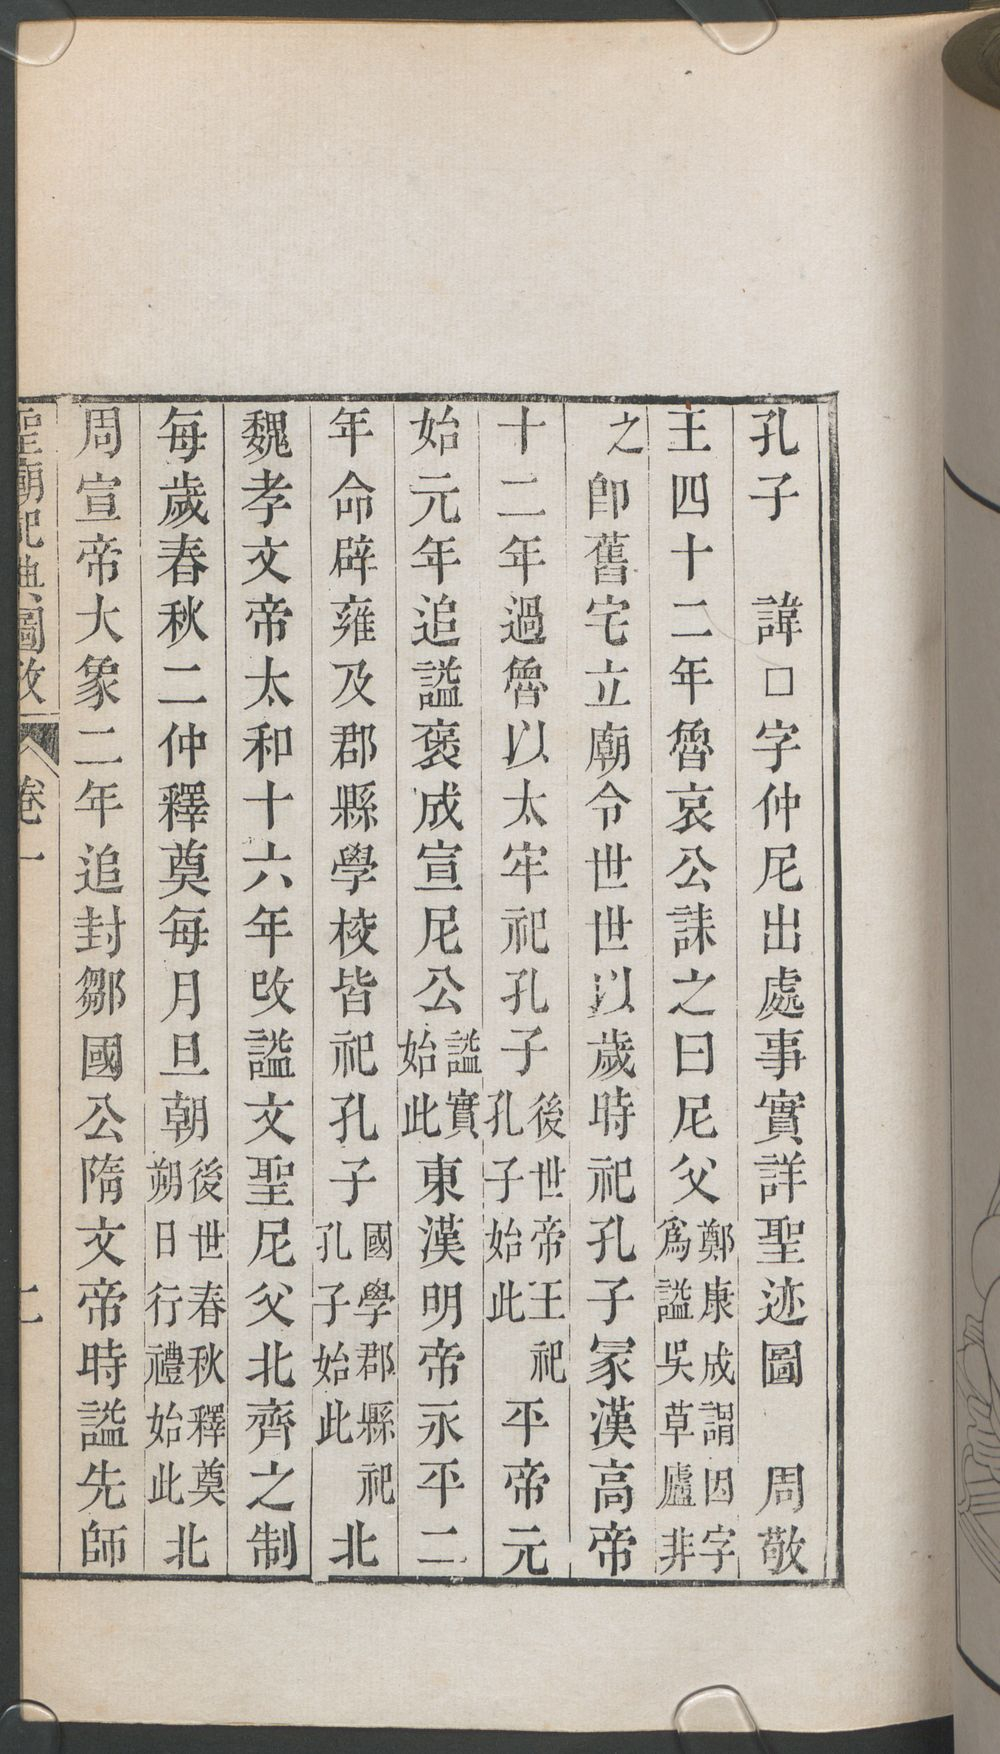 孔子　諱□字仲尼出處事實詳聖迹圖　周敬
王四十二年魯哀公誄之曰尼父鄭康成謂因字爲謚吳草廬非
之卽舊宅立廟令世世以歲時祀孔子冢漢高帝
十二年過魯以太牢祀孔子後世帝王祀孔子始此平帝元
始元年追謚褒成宣尼公謚實始此東漢明帝永平二
年命辟雍及郡縣學校皆祀孔子國學郡縣祀孔子始此北
魏孝文帝太和十六年改謚文聖尼父北齊之制
每歲春秋二仲釋奠每月旦朝後世春秋釋奠朔日行禮始此北
周宣帝大象二年追封鄒國公隋文帝時謚先師
聖廟祀典圖攷　卷一